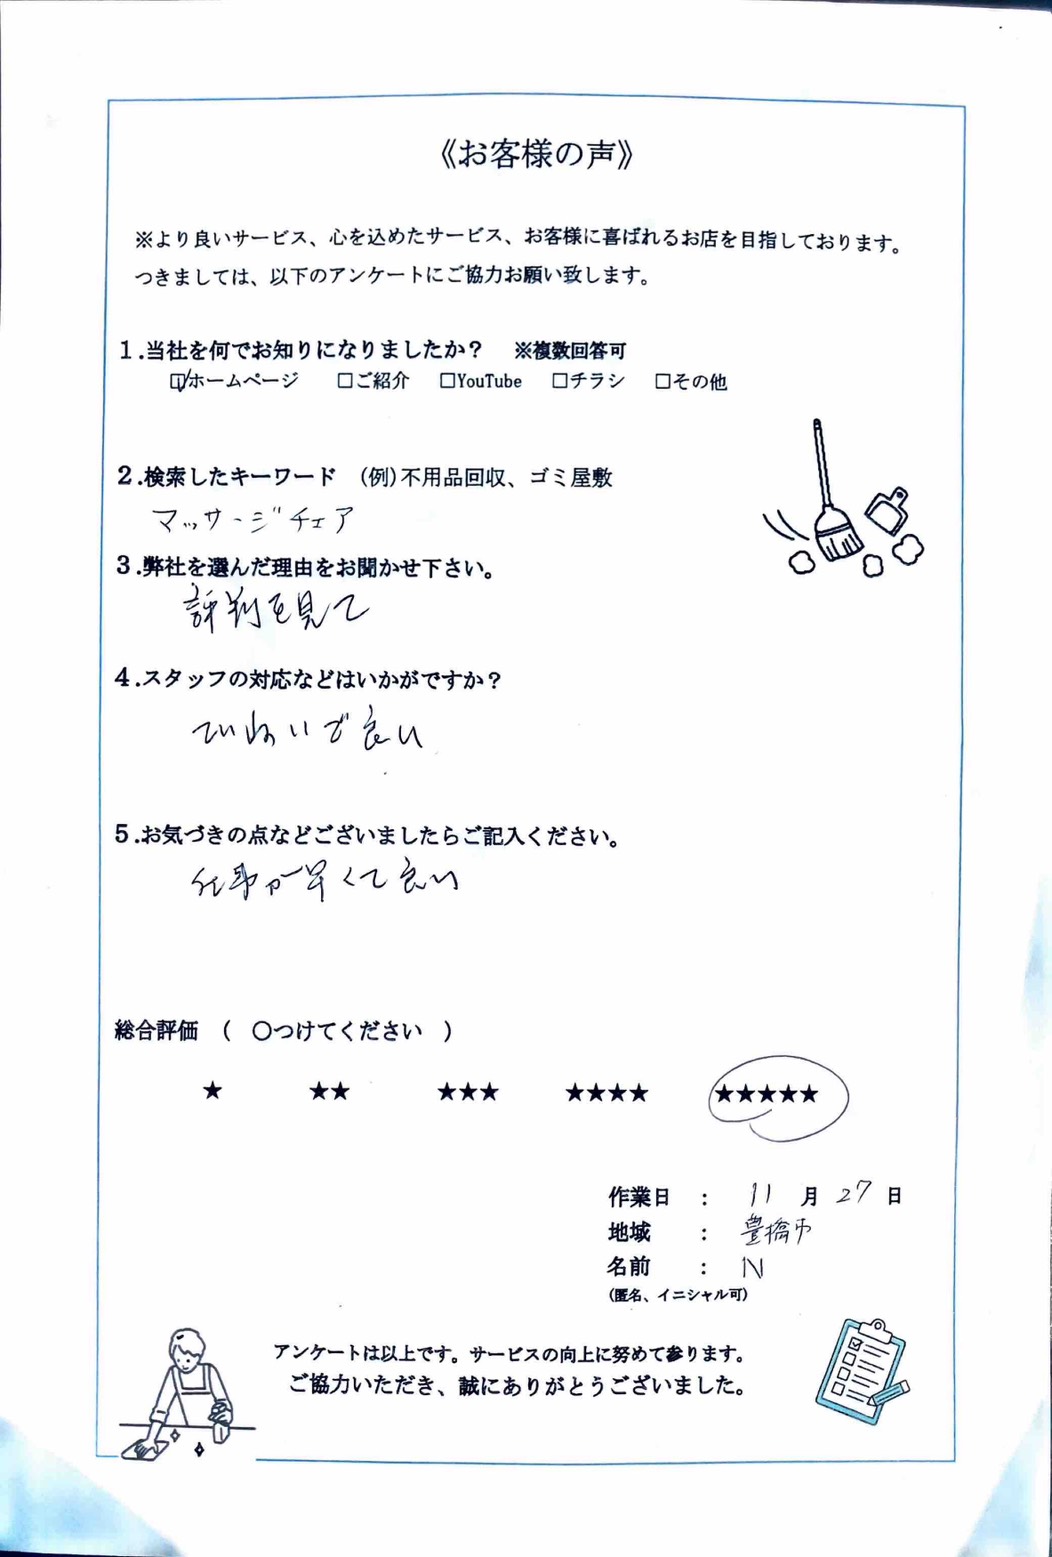 《お客様の声》
※より良いサービス、心を込めたサービス、お客様に喜ばれるお店を目指しております。
つきましては、以下のアンケートにご協力お願い致します。
1.当社を何でお知りになりましたか？　※複数回答可
☑ホームページ　□ご紹介　□YouTube　□チラシ　□その他
2.検索したキーワード　(例)不用品回収、ゴミ屋敷
マッサージチェア
3.弊社を選んだ理由をお聞かせ下さい。
評判を見て
4.スタッフの対応などはいかがですか？
ていねいで良い
5.お気づきの点などございましたらご記入ください。
仕事が早くて良い
総合評価　(　〇つけてください　)
★　★★　★★★　★★★★　★★★★★
作業日　：　11　月　27　日
地域　：　豊橋市
名前　：　N
(匿名、イニシャル可)
アンケートは以上です。サービスの向上に努めて参ります。
ご協力いただき、誠にありがとうございました。